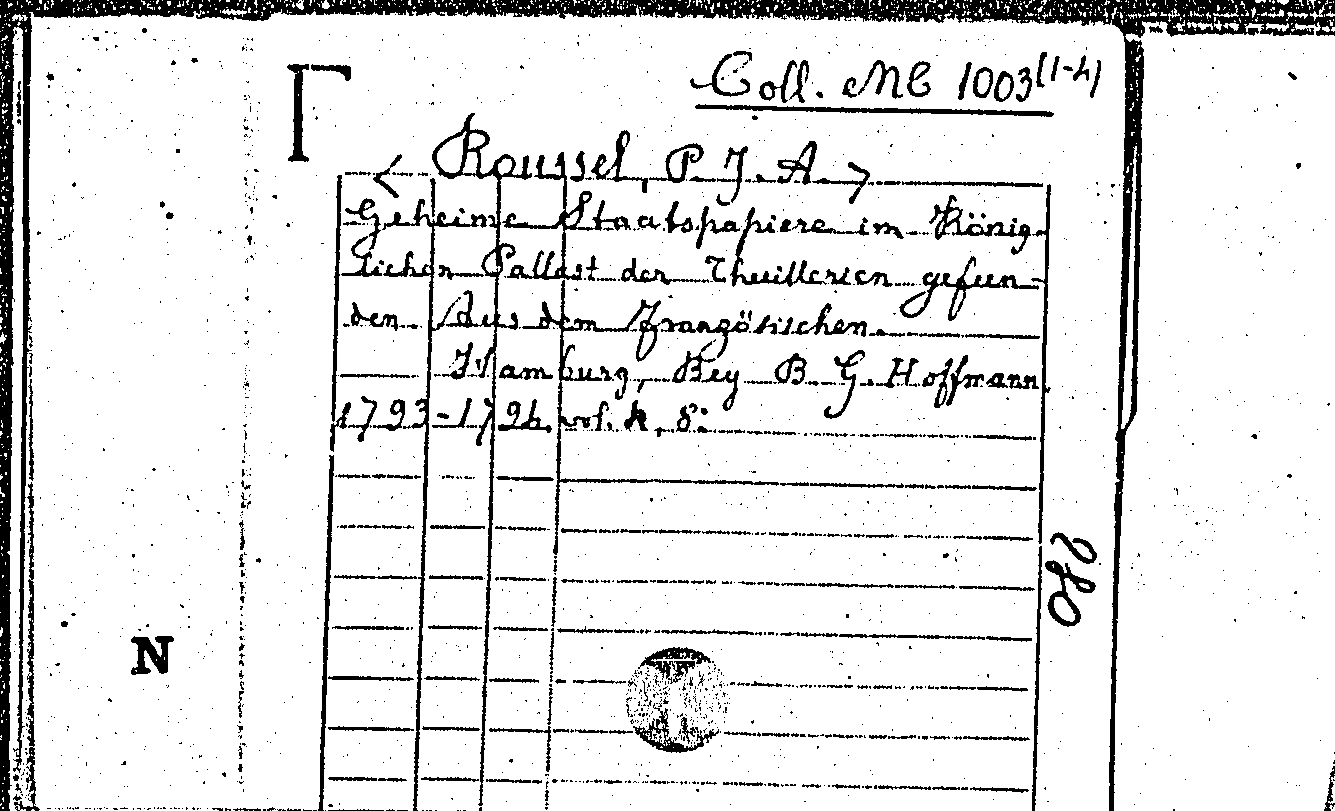 Coll. MC 1003(1-4)
< Roussel, P. J. A. >
Geheime Staatspapiere im König-
lichen Pallast der Thuillerien gefun-
den. Aus dem Französischen.
Hamburg, Bey B. G. Hoffmann.
1793-1794. vol. 4, 8:
280
N